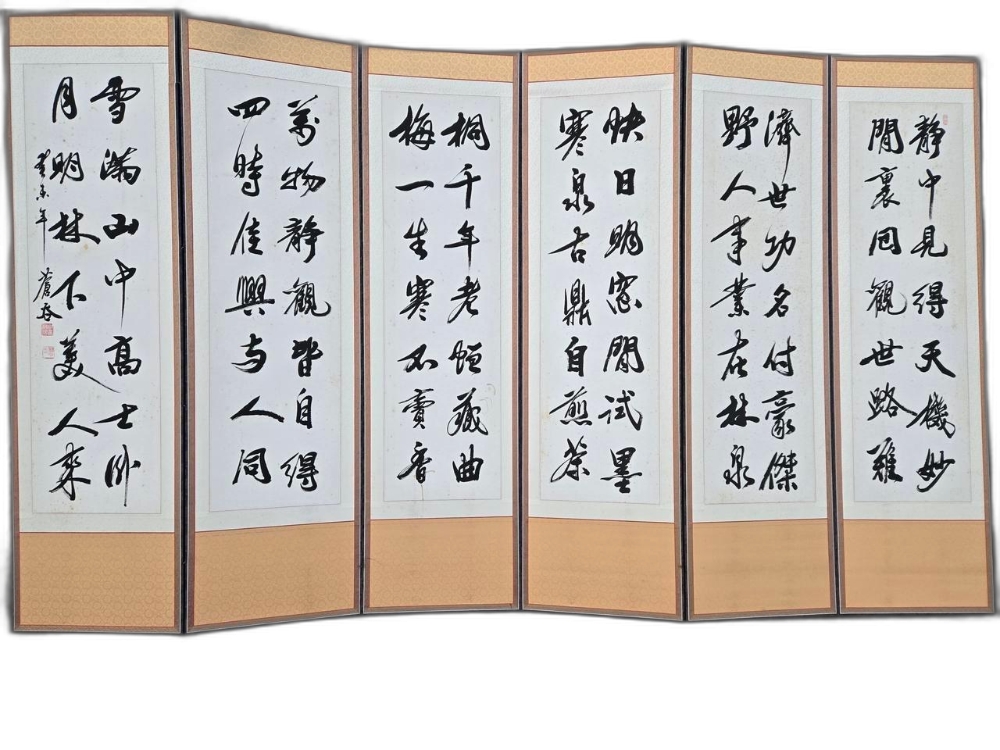 靜中見得天機妙
閒裏回觀世路難
濟世功名付豪傑
野人事業在林泉
快日明窓閒試墨
寒泉古鼎自煎茶
桐千年老恒藏曲
梅一生寒不賣香
萬物靜觀皆自得
四時佳興与人同
雪滿山中高士臥
月明林下美人來
癸未年 蒼